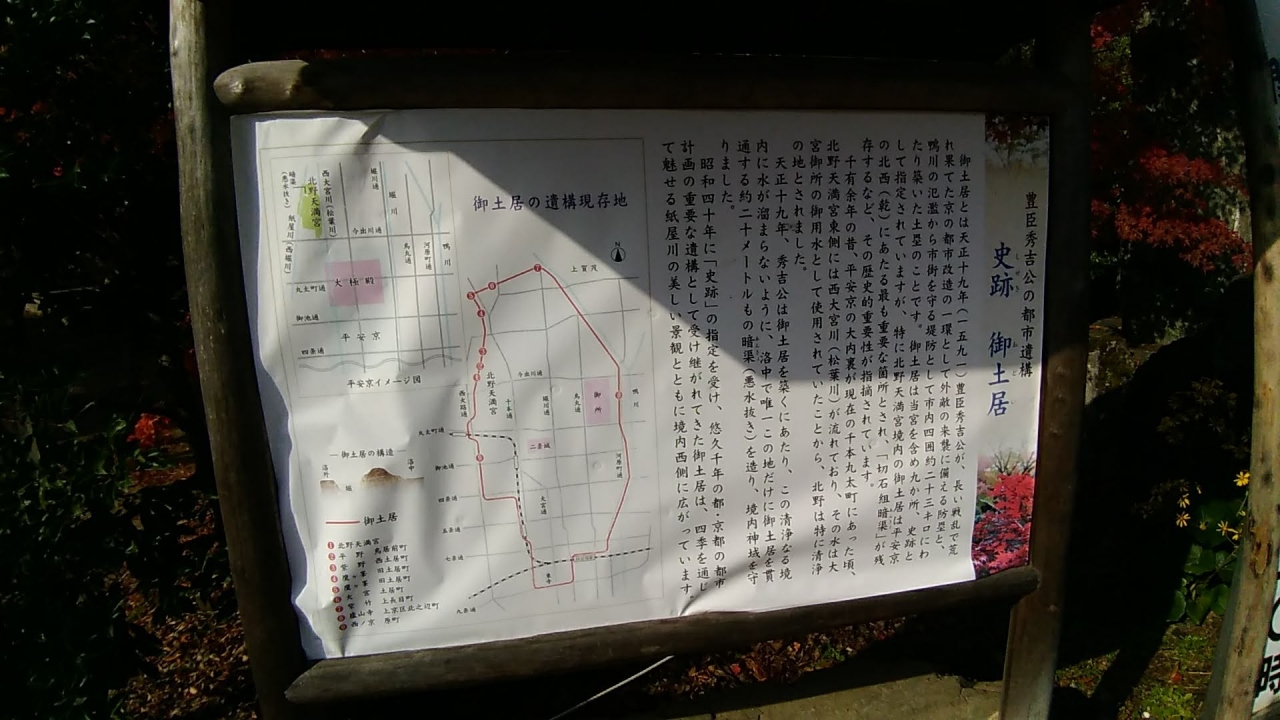 豊臣秀吉公の都市遺構
史跡 御土居
しせき おどい
御土居とは天正十九年(一五九一)豊臣秀吉公が、長い戦乱で荒
れ果てた京の都市改造の一環として外敵の来襲に備える防塁と、
鴨川の氾濫から市街を守る堤防として市内四囲約二十三キロにわ
たり築いた土塁のことです。御土居は当宮を含め九か所、史跡と
して指定されていますが、特に北野天満宮境内の御土居は平安京
の北西(乾)にあたる最も重要な箇所とされ、「切石組暗渠」が残
存するなど、その歴史的重要性が指摘されています。
千有余年の昔、平安京の大内裏が現在の千本丸太町にあった頃、
北野天満宮東側には西大宮川(松葉川)が流れており、その水は大
宮御所の御用水として使用されていたことから、北野は特に清浄
の地とされました。
天正十九年、秀吉公は御土居を築くにあたり、この清浄なる境
内に水が溜まらないように、洛中で唯一この地だけに御土居を貫
通する約二十メートルもの暗渠(悪水抜き)を造り、境内神域を守
りました。
昭和四十年に「史跡」の指定を受け、悠久千年の都・京都の都市
計画の重要な遺構として受け継がれてきた御土居は、四季を通し
て魅せる紙屋川の美しい景観とともに境内西側に広がっています。
御土居の遺構現存地
N
上賀茂
北野天満宮
西大路通
千本通
今出川通
堀川通
烏丸通
御所
鴨川
河原町通
二条城
丸太町通
御池通
四条通
五条通
七条通
九条通
大宮通
東寺
暗渠
(悪水抜き)
紙屋川(西堀川)
北野天満宮
西大宮川(松葉川)
堀川通
堀川
今出川通
烏丸通
河原町通
鴨川
大極殿
丸太町通
御池通
平安京
四条通
平安京イメージ図
御土居の構造
洛外
堀
洛中
御土居
1 北野天満宮
2 平野 鳥居前町
3 紫野 西土居町
4 鷹ヶ峯 旧土居町
5 鷹ヶ峯 旧土居町
6 大宮 土居町
7 紫竹 上長目町
8 蘆山寺 上京区北之辺町
9 西ノ京 原町
時